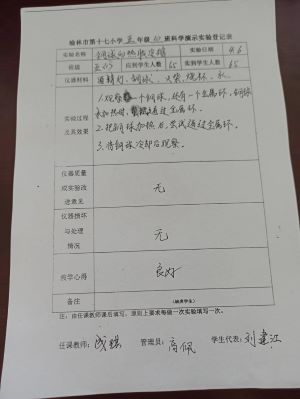 榆林市第十七小学 五 年级 班科学演示实验登记表
实验名称 钢球的热胀冷缩 实验日期 9.6
班级 应到学生人数 65 实到学生人数 65
仪器材料 酒精灯、钢球、火柴、烧杯、水
实验过程及其效果
1.观察 一个钢球,还有一个金属环,钢球
未加热时, 通过金属环。
2.把钢球加热后,尝试通过金属环。
3.待钢球冷却后观察。
仪器质量或实验改进意见 无
仪器损坏与处理情况 无
教学心得 良好
备注 (缺席学生)
注:由任课教师课后填写,原则上要求每做一次实验填写一次。
任课教师: 管理员:高佩 学生代表:刘建江